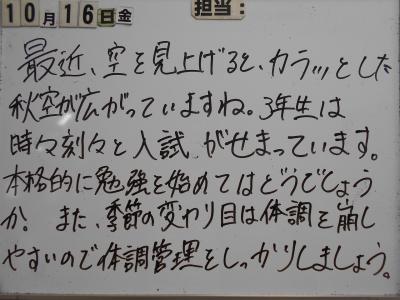 10月16日金 担当：
最近、空を見上げると、カラッとした
秋空が広がっていますね。3年生は
時々刻々と入試がせまっています。
本格的に勉強を始めてはどうでしょう
か。また、季節の変わり目は体調を崩し
やすいので体調管理をしっかりしましょう。